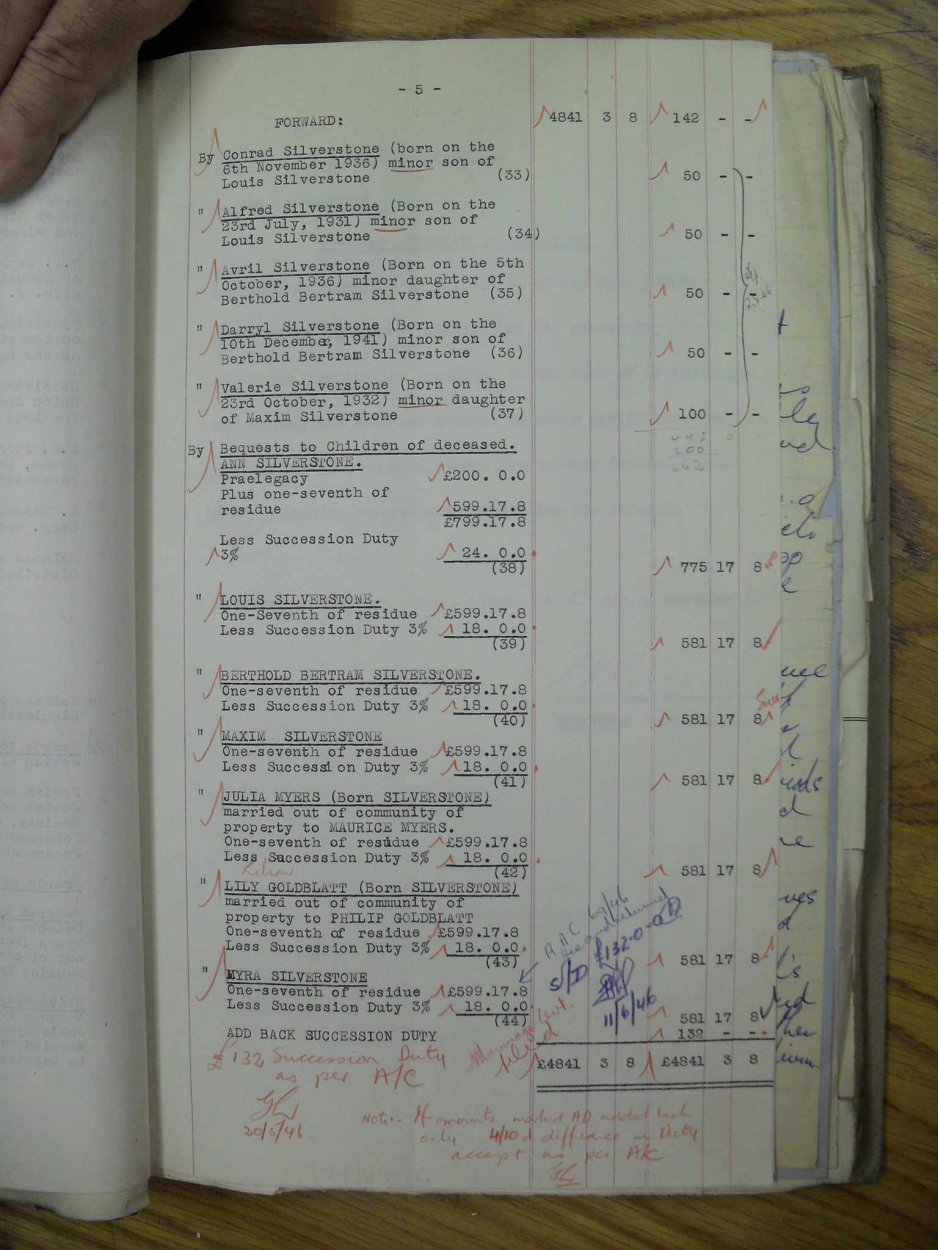 - 5 -
FORWARD: 4841 3 8 142 - -
By Conrad Silverstone (born on the
6th November 1936) minor son of
Louis Silverstone (33) 50 - -
" Alfred Silverstone (Born on the
23rd July, 1931) minor son of
Louis Silverstone (34) 50 - -
" Avril Silverstone (Born on the 5th
October, 1936) minor daughter of
Berthold Bertram Silverstone (35) 50 - -
" Darryl Silverstone (Born on the
10th December, 1941) minor son of
Berthold Bertram Silverstone (36) 50 - -
" Valerie Silverstone (Born on the
23rd October, 1932) minor daughter
of Maxim Silverstone (37) 100 - -
442 0
200
642
By Bequests to Children of deceased.
ANN SILVERSTONE.
Praelegacy £200. 0.0
Plus one-seventh of
residue 599.17.8
£799.17.8
Less Succession Duty
3% 24. 0.0
(38) 775 17 8
" LOUIS SILVERSTONE.
One-Seventh of residue £599.17.8
Less Succession Duty 3% 18. 0.0
(39) 581 17 8
" BERTHOLD BERTRAM SILVERSTONE.
One-seventh of residue £599.17.8
Less Succession Duty 3% 18. 0.0
(40) 581 17 8
" MAXIM SILVERSTONE
One-seventh of residue £599.17.8
Less Succession Duty 3% 18. 0.0
(41) 581 17 8
" JULIA MYERS (Born SILVERSTONE)
married out of community of
property to MAURICE MYERS.
One-seventh of residue £599.17.8
Less Succession Duty 3% 18. 0.0
(42) 581 17 8
" LILY GOLDBLATT (Born SILVERSTONE)
married out of community of
property to PHILIP GOLDBLATT
One-seventh of residue £599.17.8
Less Succession Duty 3% 18. 0.0
(43) 581 17 8
" MYRA SILVERSTONE
One-seventh of residue £599.17.8
Less Succession Duty 3% 18. 0.0
(44) 581 17 8
ADD BACK SUCCESSION DUTY 132 - -
£4841 3 8 £4841 3 8
S/D £132-0-0
11/6/46
£132 Succession Duty
as per A/C
20/5/46
Note:- If amounts marked AD added back
only 4/10d difference in Duty
accept as per A/C